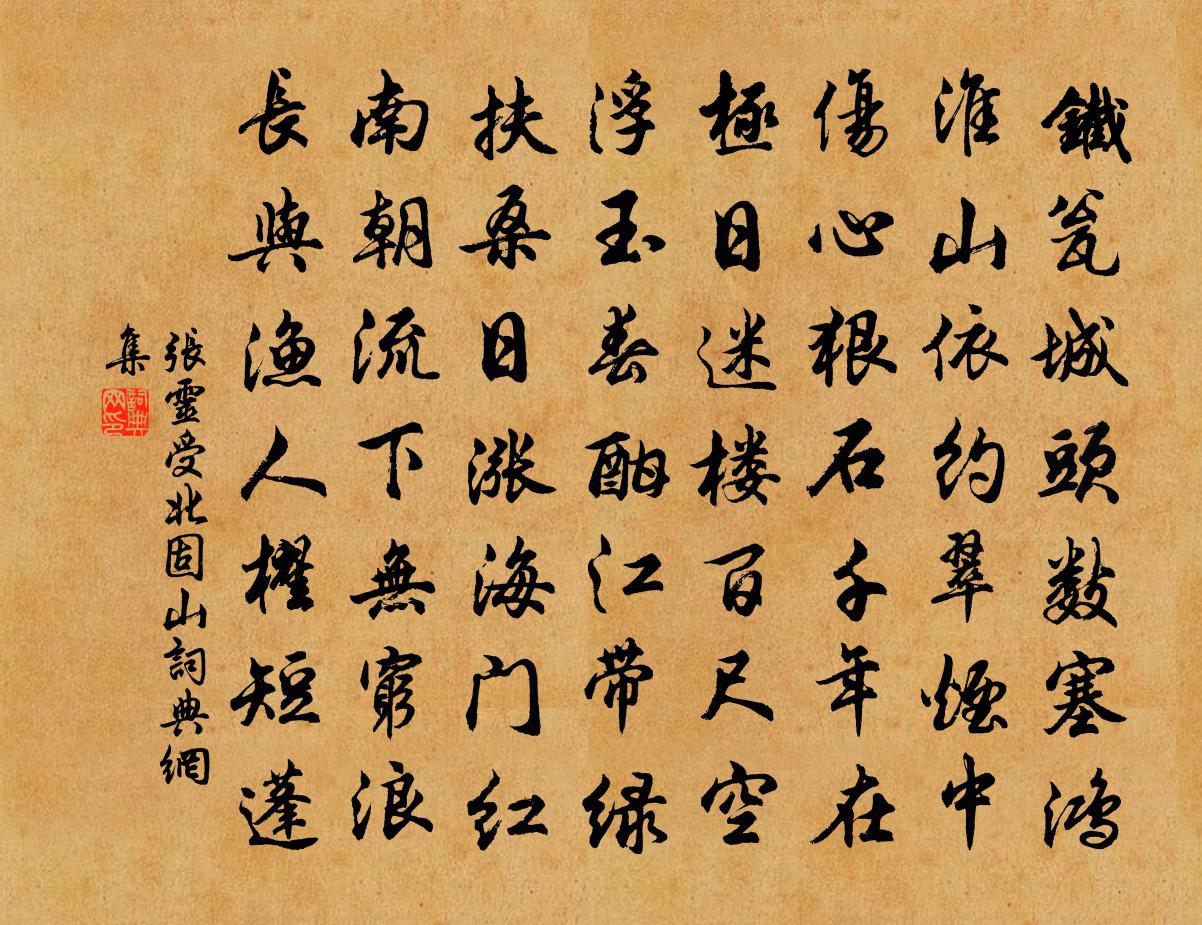 鐵瓮城頭數塞鴻
淮山依約翠煙中
傷心狠石千年在
極日迷楼百尺空
浮玉春酣江帶綠
扶桑日漲海门紅
南朝流下無窮浪
長與漁人櫂短蓬
張靈受北固山詞典網
集
詞典
网印